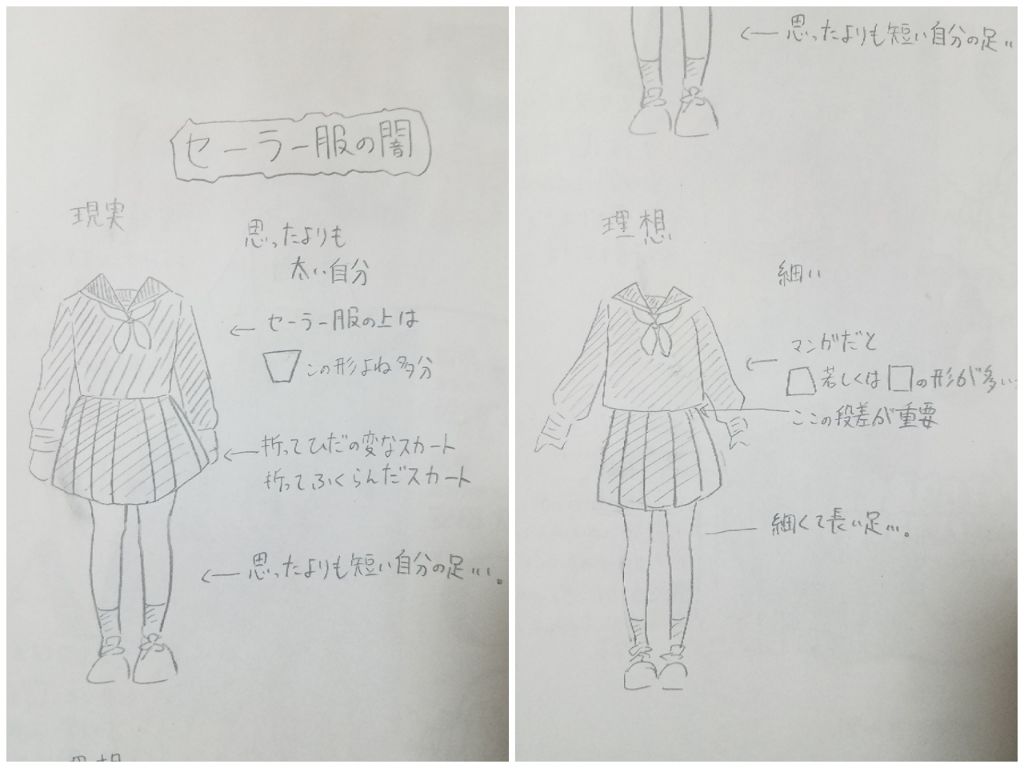 セーラー服の闇
現実
思ったよりも
太い自分
セーラー服の上は
この形よね多分
折ってひだの変なスカート
折ってふくらんだスカート
思ったよりも短い自分の足…。
思ったよりも短い自分の足…
理想
細い
マンガだと
若しくは の形が多い…
ここの段差が重要
細くて長い足…。